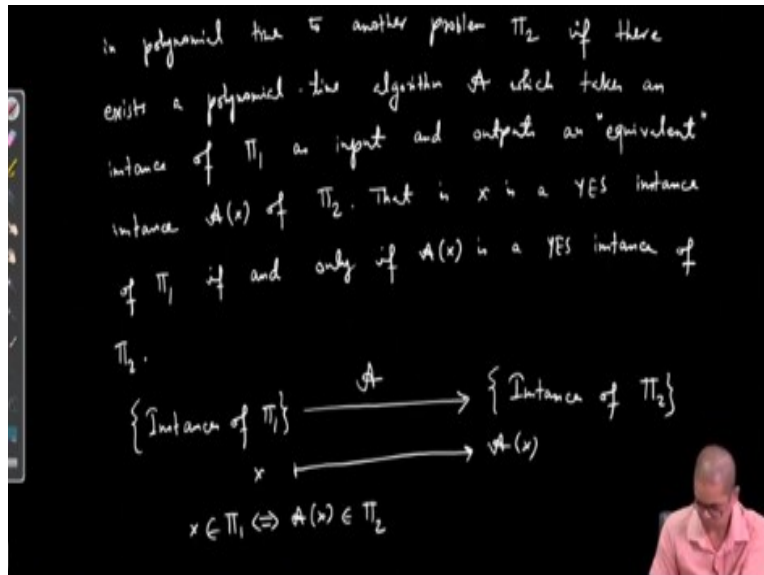 in polynomial time to another problem Π₂ if there
exists a polynomial-time algorithm A which takes an
instance of Π₁ as input and outputs an "equivalent"
instance A(x) of Π₂. That is x is a YES instance
of Π₁ if and only if A(x) is a YES instance of
Π₂.
A
{Instances of Π₁} → {Instances of Π₂}
x ↦ A(x)
x ∈ Π₁ ⇔ A(x) ∈ Π₂